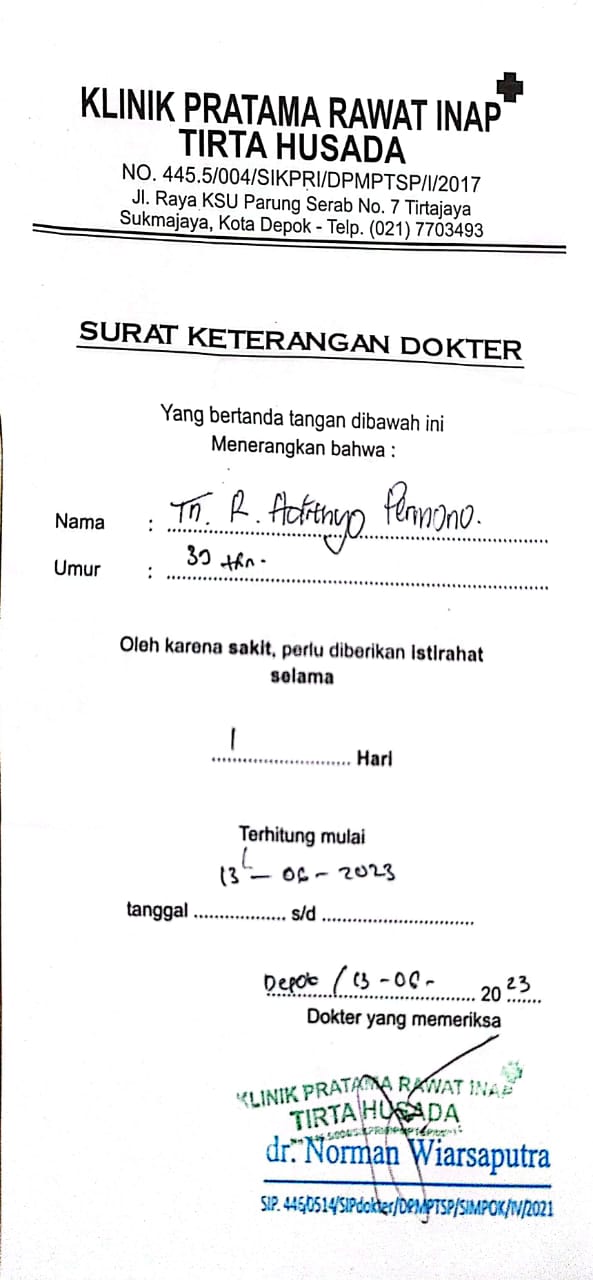 KLINIK PRATAMA RAWAT INAP
TIRTA HUSADA
NO. 445.5/004/SIKPRI/DPMPTSP/I/2017
Jl. Raya KSU Parung Serab No. 7 Tirtajaya
Sukmajaya, Kota Depok - Telp. (021) 7703493
SURAT KETERANGAN DOKTER
Yang bertanda tangan dibawah ini
Menerangkan bahwa :
Nama : Tn. R. Adithyo Permono.
Umur : 30 thn.
Oleh karena sakit, perlu diberikan istirahat
selama
1 Hari
Terhitung mulai
13 - 06 - 2023
tanggal .................. s/d ............................
Depok / 13 - 06 - 2023
Dokter yang memeriksa
KLINIK PRATAMA RAWAT INAP
TIRTA HUSADA
dr. Norman Wiarsaputra
SIP. 445/0514/SIPdokter/DPMPTSP/SIMPOK/IV/2021